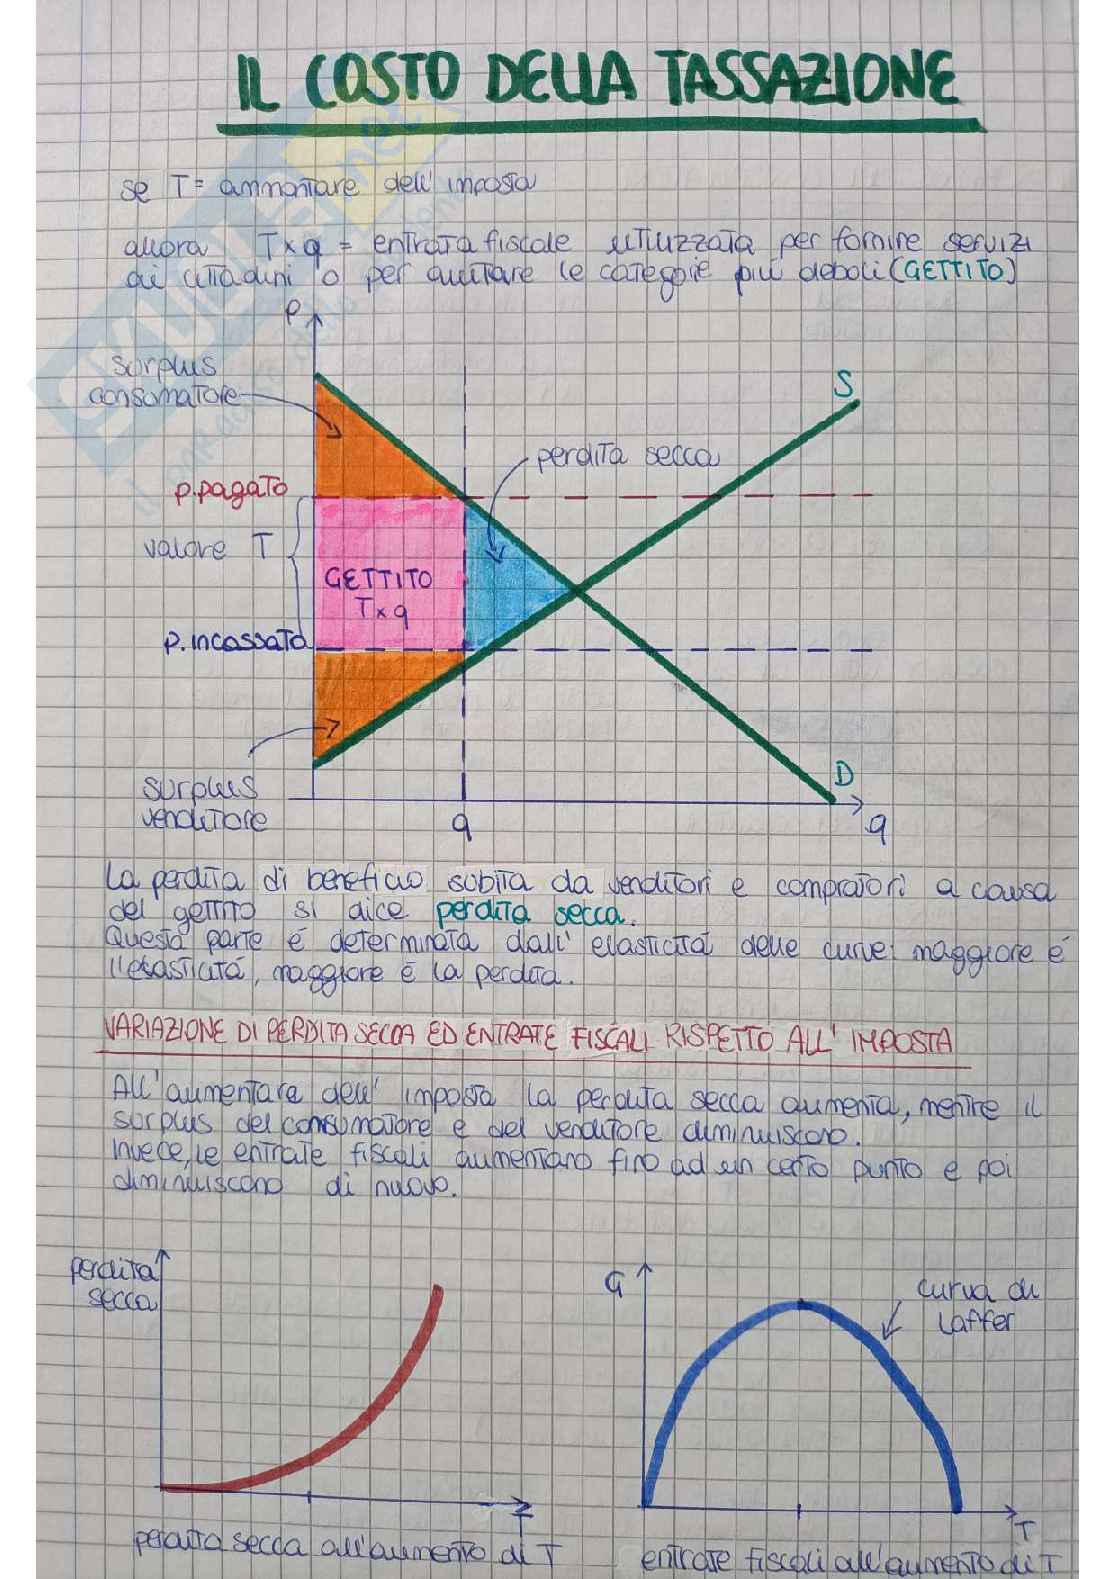 IL COSTO DELLA TASSAZIONE
se T = ammontare dell'imposta
allora T x q = entrata fiscale utilizzata per fornire servizi
ai cittadini o per aiutare le categorie più deboli (GETTITO)
P
surplus
consumatore
S
perdita secca
p.pagato
valore T
GETTITO
T x q
p.incassato
surplus
venditore
D
q
q
La perdita di beneficio subita da venditori e compratori a causa
del gettito si dice perdita secca.
Questa parte é determinata dall'elasticitá delle curve: maggiore é
l'elasticitá, maggiore é la perdita.
VARIAZIONE DI PERDITA SECCA ED ENTRATE FISCALI RISPETTO ALL'IMPOSTA
All'aumentare dell'imposta la perdita secca aumenta, mentre il
surplus del consumatore e del venditore diminuiscono.
Invece, le entrate fiscali aumentano fino ad un certo punto e poi
diminuiscono di nuovo.
perdita
secca
T
perdita secca all'aumento di T
G
curva di
Laffer
T
entrate fiscali all'aumento di T